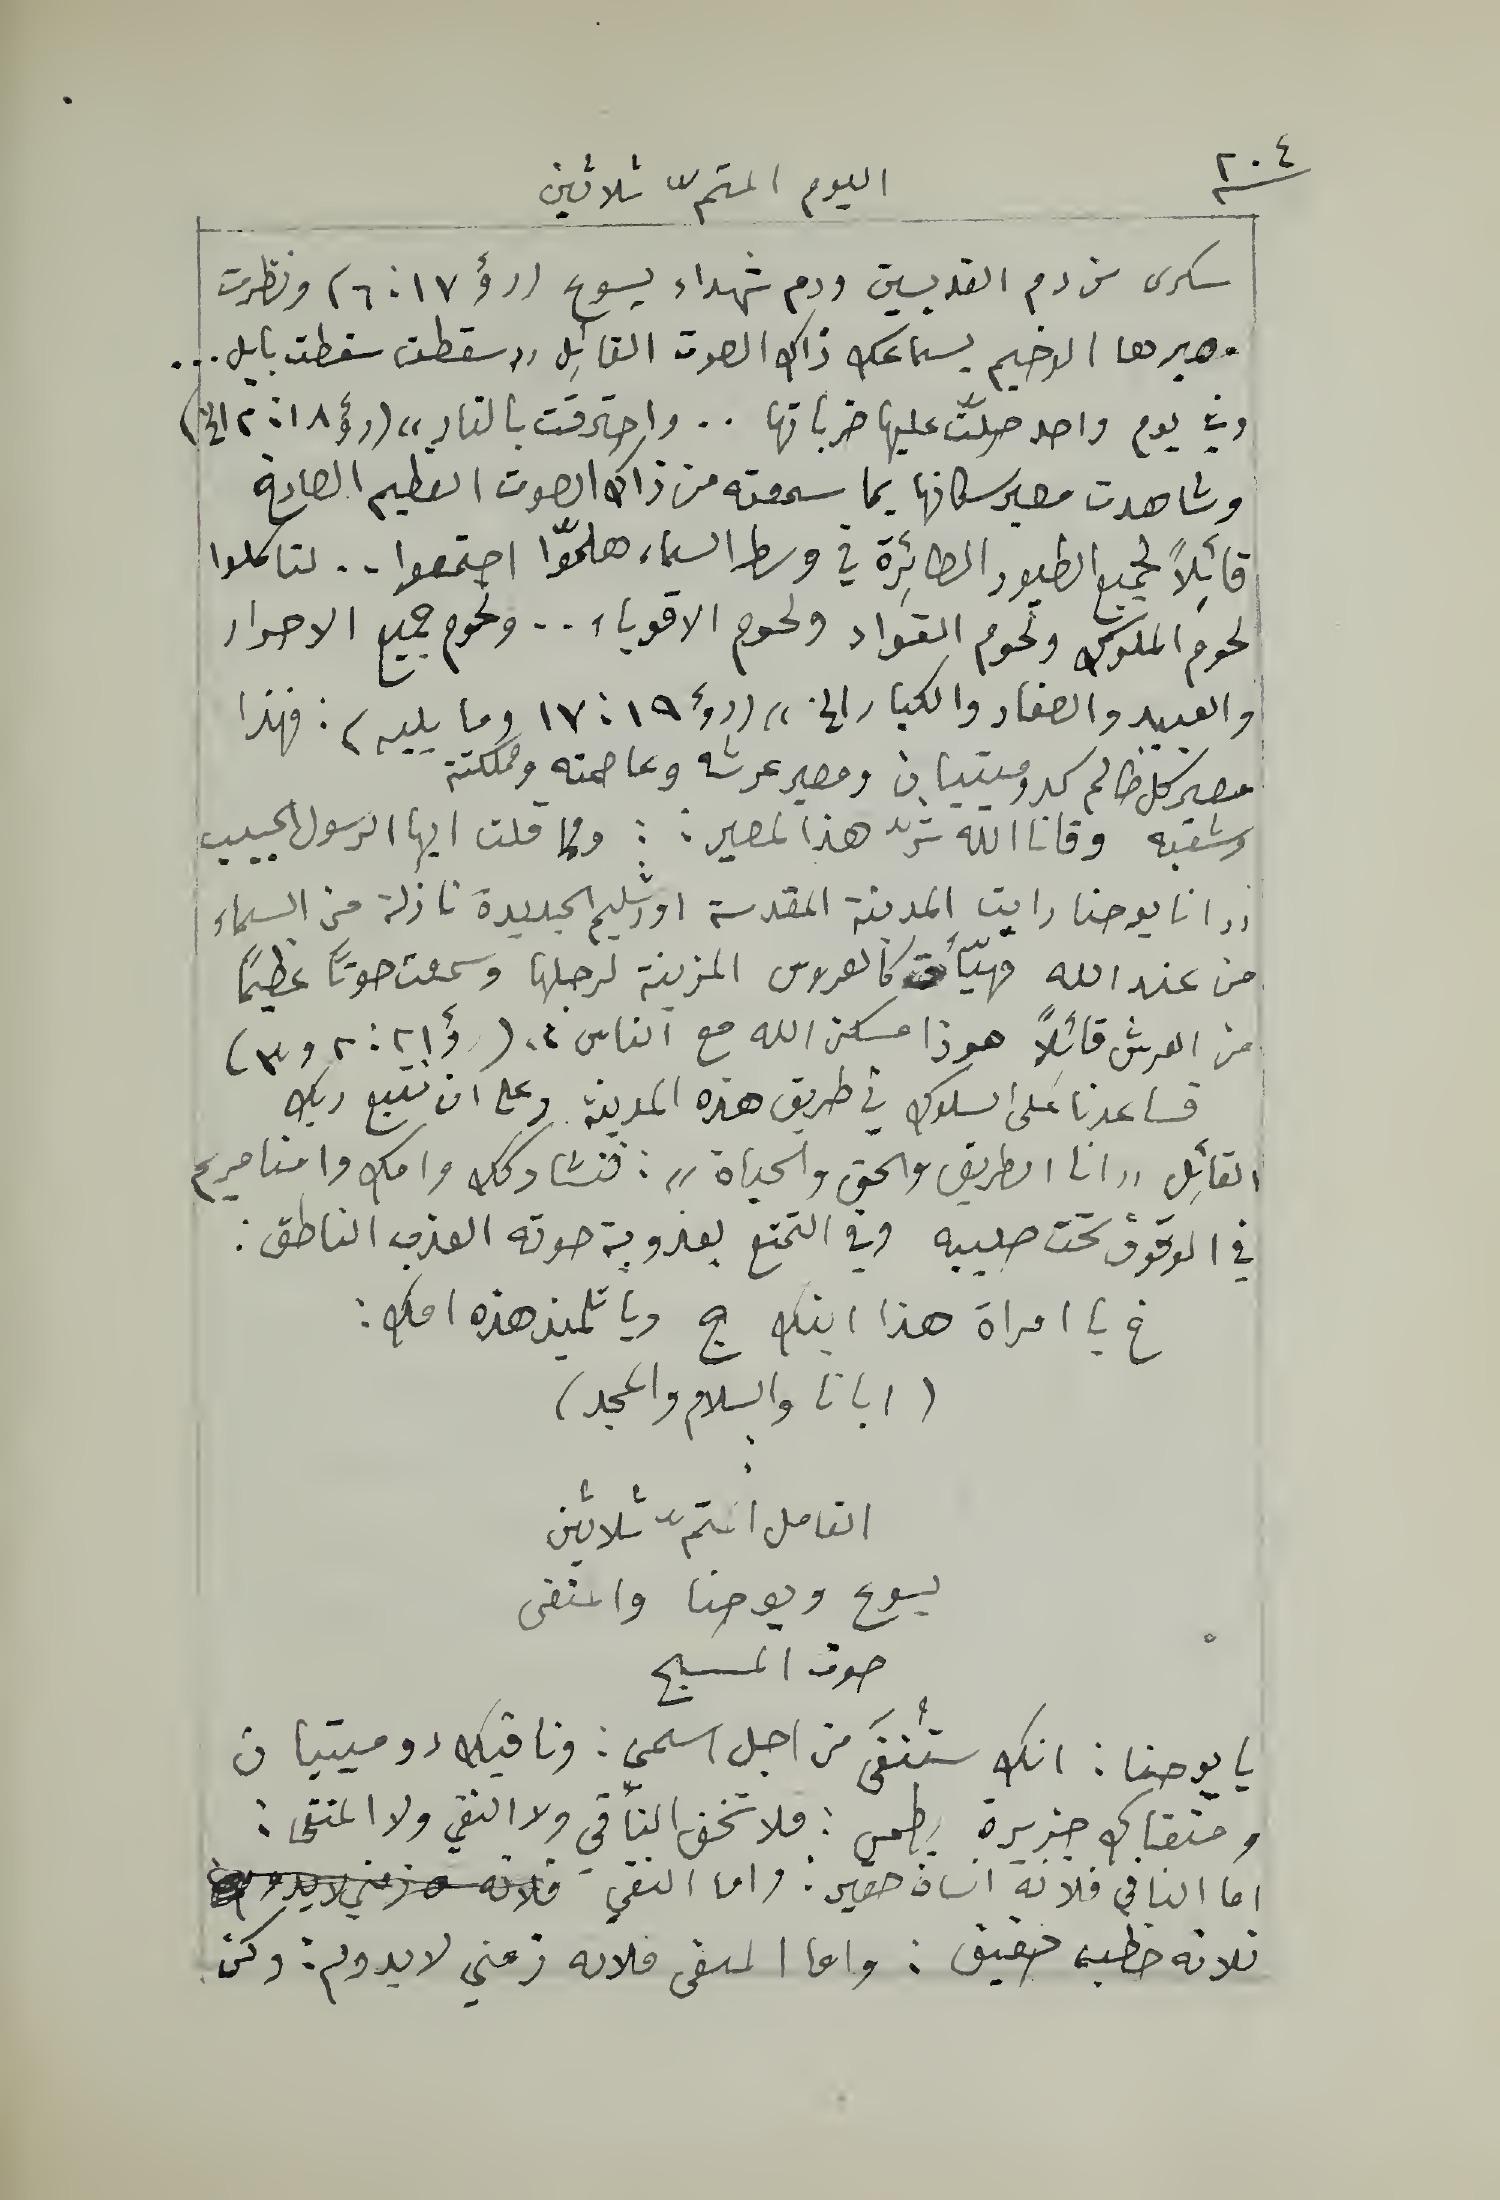 ٢٠٤
اليوم المتمّ ثلاثين
سكرى من دم القديسين ودم شهداء يسوع (رؤ ١٧: ٦) ونظرت
مصيرها الوخيم بسماعك ذاك الصوت القائل «سقطت سقطت بابل...
وفي يوم واحد حلّت عليها ضرباتها .. واحترقت بالنار» (رؤ ١٨: ٢ الخ)
وشاهدت مصير سكانها بما سمعته من ذاك الصوت العظيم الصارخ
قائلاً لجميع الطيور الطائرة في وسط السماء هلمّوا اجتمعوا .. لتاكلوا
لحوم الملوك ولحوم القواد ولحوم الاقوياء .. ولحوم جميع الاحرار
والعبيد والصغار والكبار الخ» (رؤ ١٩: ١٧ وما يليه): فهذا
مصير كل ظالم كدوميتيان ومصير عرشه وعاصمته ومملكته
وشعبه وقانا الله شرّ هذا المصير: : ومما قلت ايها الرسول الحبيب
«انا يوحنا رايت المدينة المقدسة اورشليم الجديدة نازلة من السماء
من عند الله مهيّأة كالعروس المزينة لرجلها وسمعت صوتاً عظيماً
من العرش قائلاً هوذا مسكن الله مع الناس». (رؤ ٢١: ٢ و٣)
فساعدنا على السلوك في طريق هذه المدينة وعلى ان نتبع ربك
القائل «انا الطريق والحق والحياة»: فنشاركك وامك وامنا مريم
في الوقوف تحت صليبه وفي التمتع بعذوبة صوته العذب الناطق:
غ يا امراة هذا ابنك ج ويا تلميذ هذه امك:
(ابانا والسلام والمجد)
التامل المتمّ ثلاثين
يسوع ويوحنا والمنفى
صوت المسيح
يا يوحنا: انك ستُنفَى من اجل اسمي: ونافيك دوميتيان
ومنفاك جزيرة بطمس: فلا تخف النّافي ولا النفي ولا المنفى:
اما النافي فلانه انسان حقير: واما النفي فلانه زمني لا يدوم
فلانه خطب خفيف: واما المنفى فلانه زمني لا يدوم: وكن